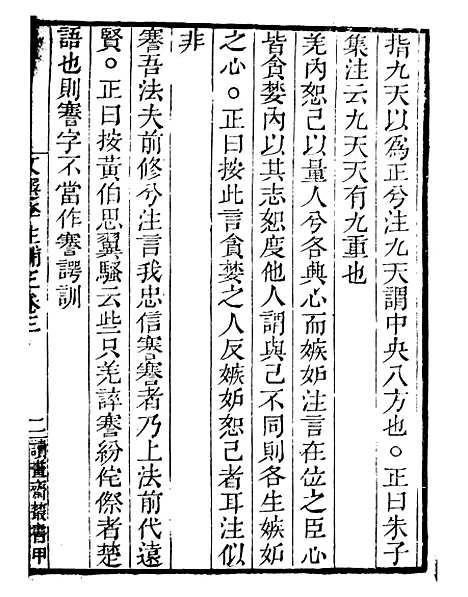 指九天以為正兮注九天謂中央八方也○正曰朱子
集注云九天天有九重也
羌內恕己以量人兮各興心而嫉妒注言在位之臣心
皆貪婪內以其志恕度他人謂與己不同則各生嫉妒
之心○正曰按此言貪婪之人反嫉妒恕己者耳注似
非
謇吾法夫前修兮注言我忠信謇謇者乃上法前代遠
賢○正曰按黃伯思翼騷云些只羌誶謇紛侘傺者楚
語也則謇字不當作謇諤訓
文選李注補正卷三
二
讀畫齋叢書甲